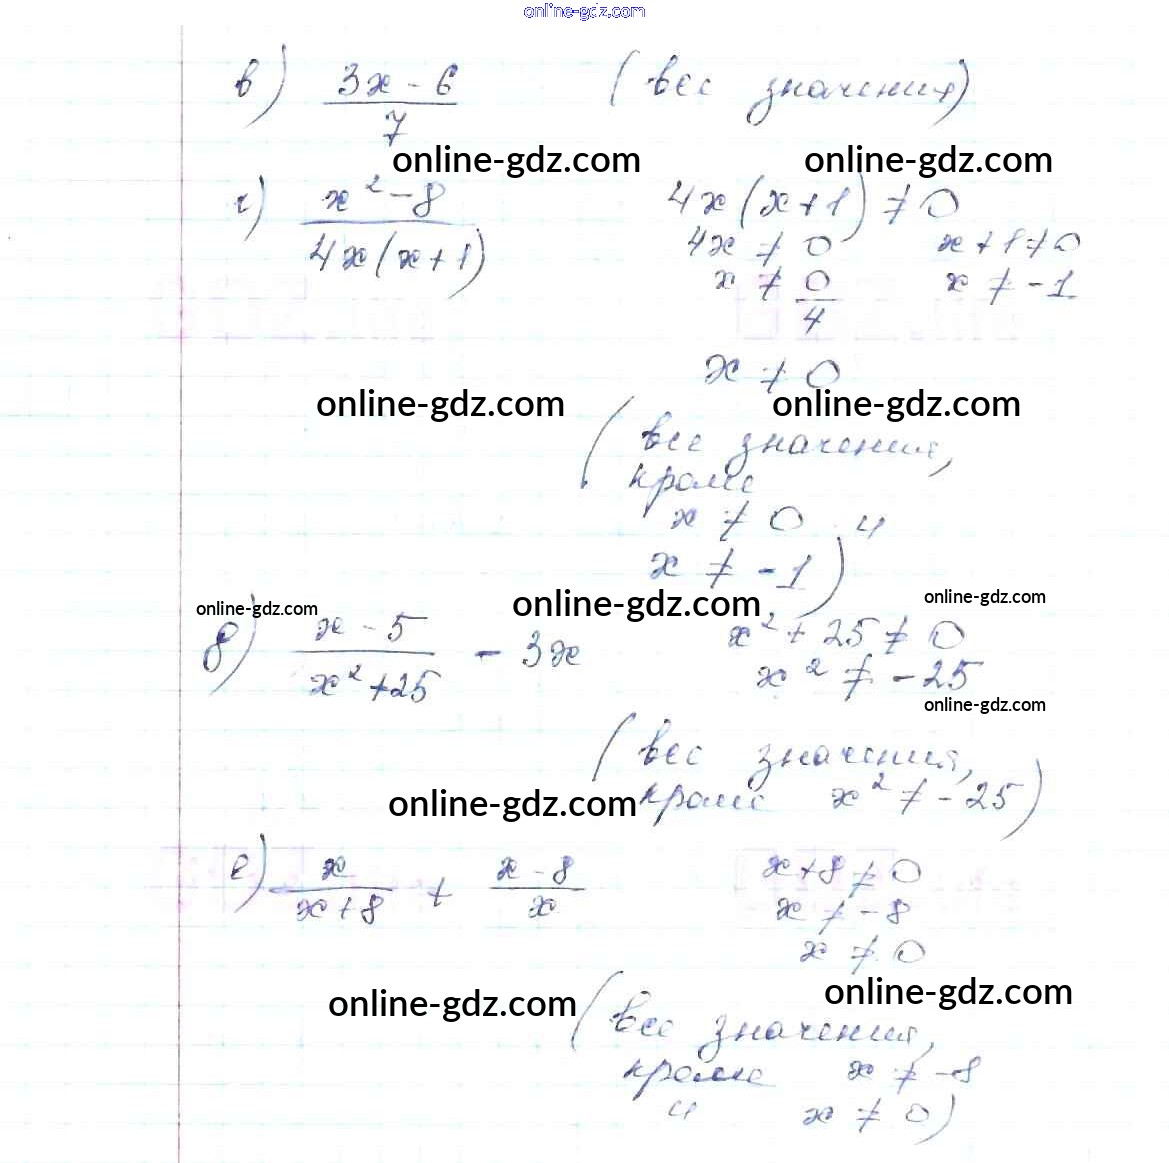 online-gdz.com
в) (3x - 6)/7 (все значения)
online-gdz.com online-gdz.com
г) (x² - 8)/(4x(x+1)) 4x(x+1) ≠ 0
4x ≠ 0 x+1 ≠ 0
x ≠ 0/4 x ≠ -1
x ≠ 0
online-gdz.com online-gdz.com
(все значения,
кроме
x ≠ 0 и
x ≠ -1)
online-gdz.com online-gdz.com online-gdz.com
д) (x - 5)/(x² + 25) - 3x x² + 25 ≠ 0
x² ≠ -25
online-gdz.com
(все значения,
кроме x² ≠ -25)
online-gdz.com
е) x/(x+8) + (x - 8)/x x+8 ≠ 0
x ≠ -8
x ≠ 0
online-gdz.com online-gdz.com
(все значения,
кроме x ≠ -8
и x ≠ 0)